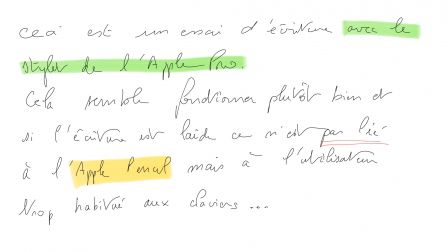 ceci est un essai d'écriture avec le
stylet de l'Apple Pro.
Cela semble fonctionner plutôt bien et
si l'écriture est laide ce n'est pas lié
à l'Apple Pencil mais à l'utilisateur
trop habitué aux claviers ...